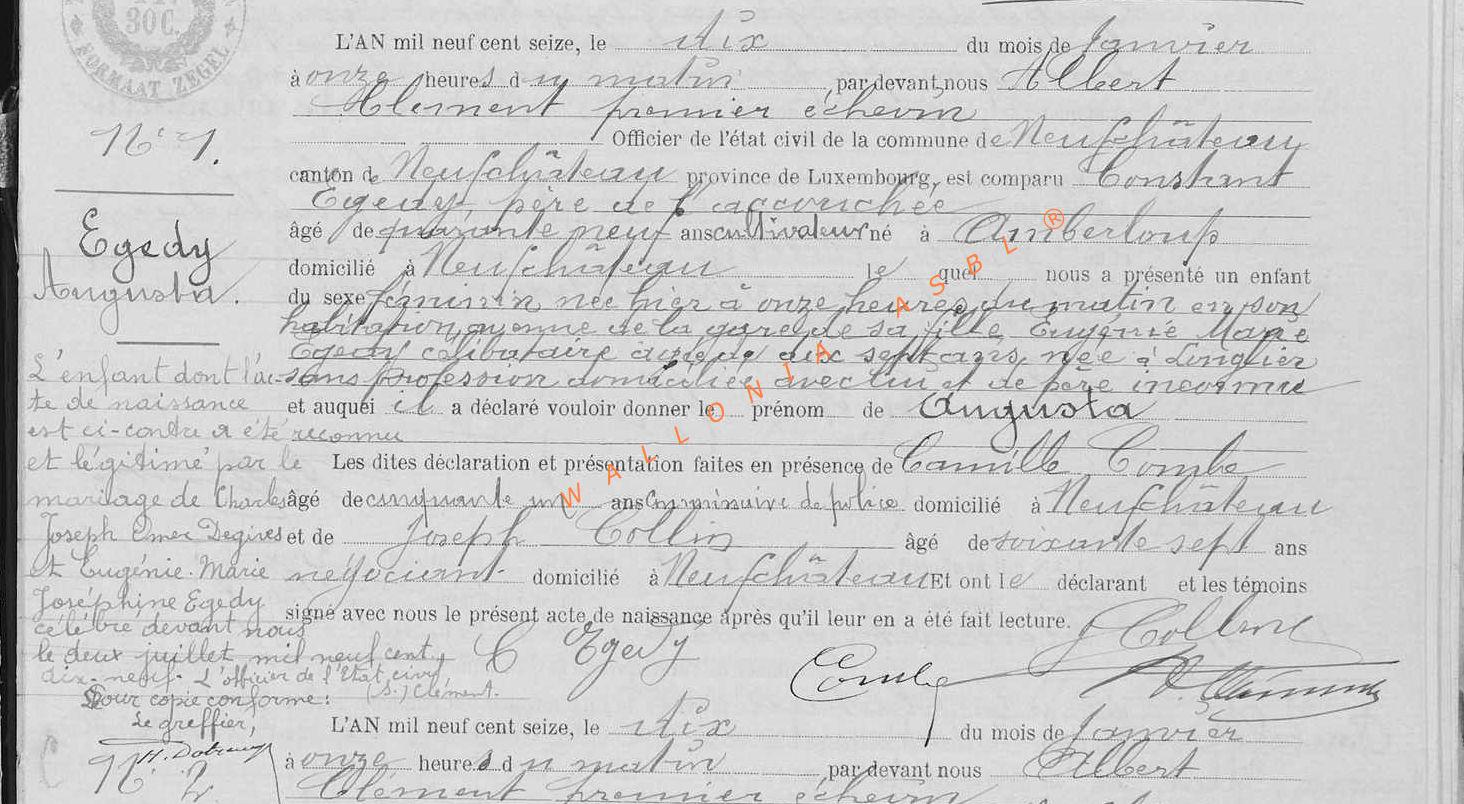 30C.
FORMAAT ZEGEL
L'AN mil neuf cent seize, le dix du mois de Janvier
à onze heures du matin, par devant nous Albert
Clément premier échevin
Officier de l'état civil de la commune de Neufchâteau
N° 1.
canton de Neufchâteau province de Luxembourg, est comparu Constant
Egedy, père de l'accouchée
âgé de quarante neuf ans cultivateur né à Amberloup
domicilié à Neufchâteau lequel nous a présenté un enfant
du sexe féminin née hier à onze heures du matin en son
habitation, avenue de la gare, de sa fille Eugénie Marie
Egedy célibataire âgée de dix sept ans, née à Longlier
sans profession domiciliée avec lui et de père inconnu
et auquel il a déclaré vouloir donner le prénom de Augusta
Les dites déclaration et présentation faites en présence de Camille Combe
âgé de cinquante un ans Commissaire de police domicilié à Neufchâteau
et de Joseph Collin âgé de soixante sept ans
négociant domicilié à Neufchâteau Et ont le déclarant et les témoins
signé avec nous le présent acte de naissance après qu'il leur en a été fait lecture.
C Egedy
Combe
J Collin
A. Clément
Egedy
Augusta.
L'enfant dont l'ac-
te de naissance
est ci-contre a été reconnu
et légitimé par le
mariage de Charles
Joseph Omer Degives
et Eugénie-Marie
Joséphine Egedy
célébré devant nous
le deux juillet mil neuf cent
dix-neuf. L'officier de l'Etat civil
(S.) Clément.
Pour copie conforme:
Le greffier,
N° 2
L'AN mil neuf cent seize, le dix du mois de Janvier
à onze heures du matin, par devant nous Albert
Clément premier échevin
WALLONIA ASBL ®